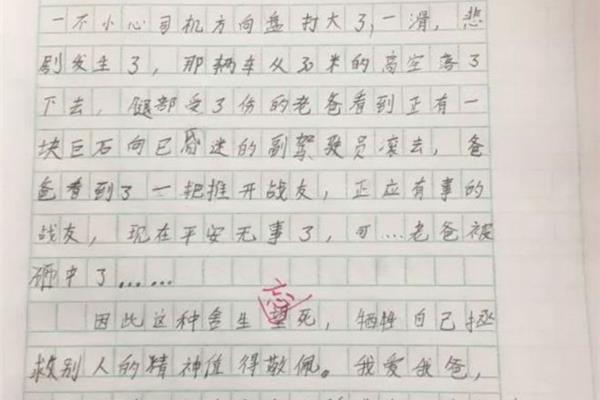 一不小心司机方向盘打大了,一滑,悲
剧发生了,那辆车从30米的高空落了
下去,腿部受了伤的老爸看到正有一
块巨石向已昏迷的副驾驶员滚去,爸
爸看到了一把推开战友,正应有事的
战友,现在平安无事了,可....老爸被
砸中了......
因此这种舍生望死,牺牲自己拯
忘
救别人的精神值得敬佩。我爱我爸,